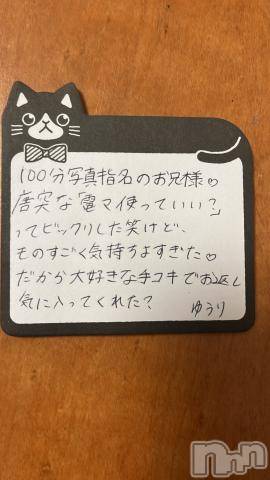 100分写真指名のお兄様♡
唐突な「電マ使っていい?」
ってビックリした笑けど、
ものすごく気持ちよすぎた♡
だから大好きな手コキでお返し
気に入ってくれた?
ゆうり